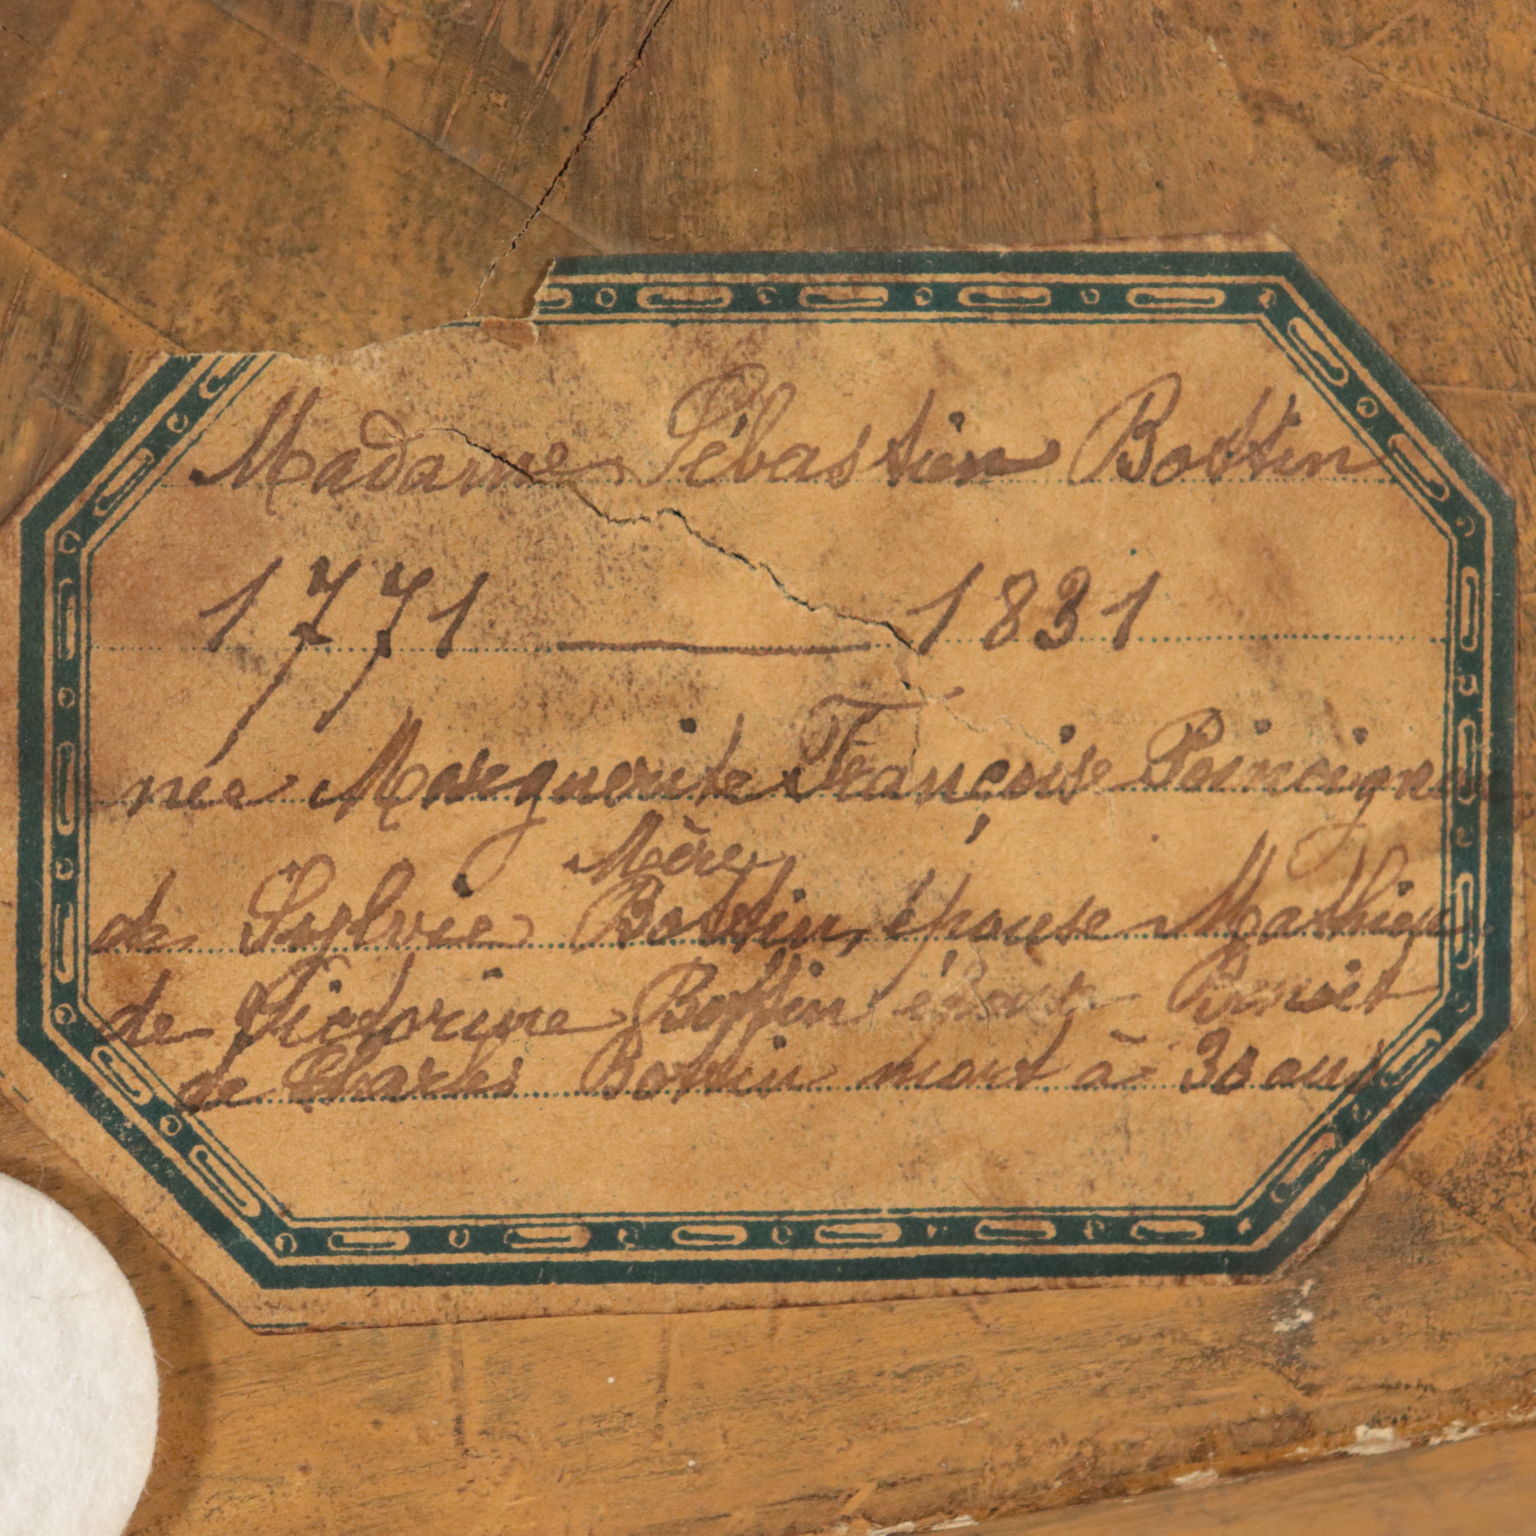 Madame Sébastien Bottin
1771 — 1831
née Marguerite Françoise Poincignon
Mère
de Sylvie Bottin, épouse Mathieu
de Victorine Bottin épouse Benoit
de Charles Bottin mort à 30 ans